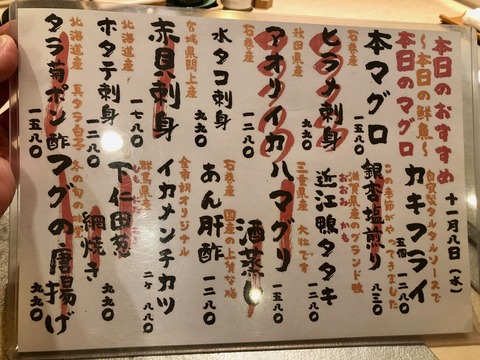 本日のおすすめ
十一月八日(水)
本日のマグロ
〜本日の鮮魚〜
石巻産
本マグロ
一五八〇
秋田県産
ヒラメ刺身
一二八〇
アオリイカ
一二八〇
水タコ刺身
九九〇
宮城県閖上産
赤貝刺身
一七八〇
北海道産
ホタテ刺身
一二八〇
北海道産 真タラ白子
タラ菊ポン酢
一五八〇
自家製タルタルソースで
カキフライ
五個 一二八〇
この季節がやってきました
銀杏塩煎り
八三〇
滋賀県産のブランド鴨
おおみ かも
近江鴨タタキ
一五八〇
三重県産 大粒です
ハマグリ
酒蒸し
石巻産 国産の上質な
あん肝酢
一二八〇
金南朝オリジナル
イカメンチカツ
二ヶ 八八〇
群馬県産
しもにたねぎ
下仁田葱
網焼き
九九〇
冬の旬の味覚
フグの唐揚げ
九九〇